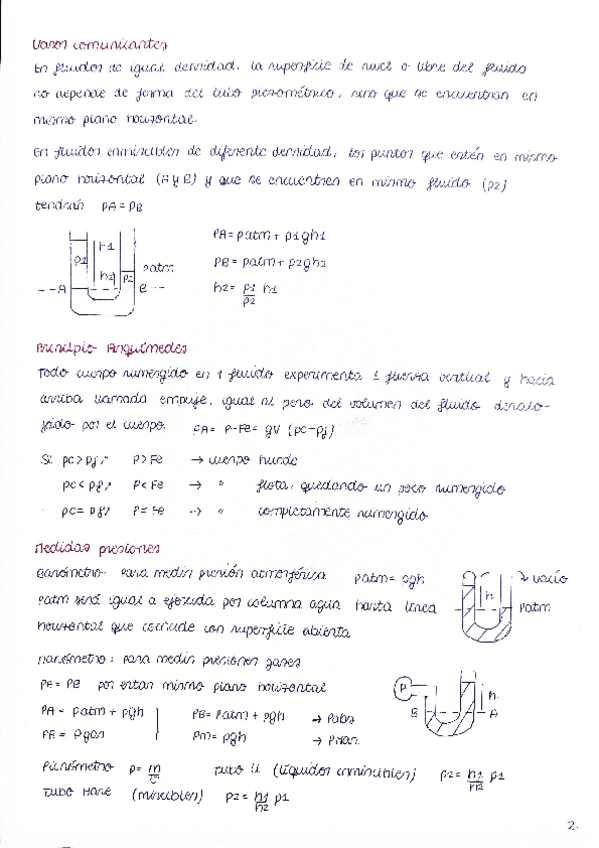 Vasos comunicantes
En fluidos de igual densidad, la superficie de nivel o libre del fluido
no depende de forma del tubo piezométrico, sino que se encuentran en
mismo plano horizontal.
En fluidos inmiscibles de diferente densidad, los puntos que estén en mismo
plano horizontal (A y B) y que se encuentren en mismo fluido (ρ2)
tendrán PA = PB
PA = patm + ρ1gh1
PB = patm + ρ2gh2
h2 = ρ1/ρ2 h1
h1
ρ1
h2
ρ2
patm
A
B
Principio Arquímedes
Todo cuerpo sumergido en 1 fluido experimenta 1 fuerza vertical y hacia
arriba llamada empuje, igual al peso del volumen del fluido desalo-
jado por el cuerpo. FA = P-Fe = gV (ρc-ρf)
Si ρc > ρf, P > Fe → cuerpo hunde
ρc < ρf, P < Fe → " flota, quedando un poco sumergido
ρc = ρf, P = Fe → " completamente sumergido
Medidas presiones
Barómetro: Para medir presión atmosférica patm = ρgh
Patm será igual a ejercida por columna agua hasta línea
horizontal que coincide con superficie abierta
h
→ vacío
Patm
Manómetro: para medir presiones gases
PA = PB por estar mismo plano horizontal
PA = patm + ρgh PB = Patm + ρgh → Pabs
PB = Pgas Pm = ρgh → Pman.
P
B
h
A
Picnómetro ρ = m/v Tubo U (líquidos inmiscibles) ρ2 = h1/h2 ρ1
Tubo Hare (miscibles) ρ2 = h1/h2 ρ1
2.